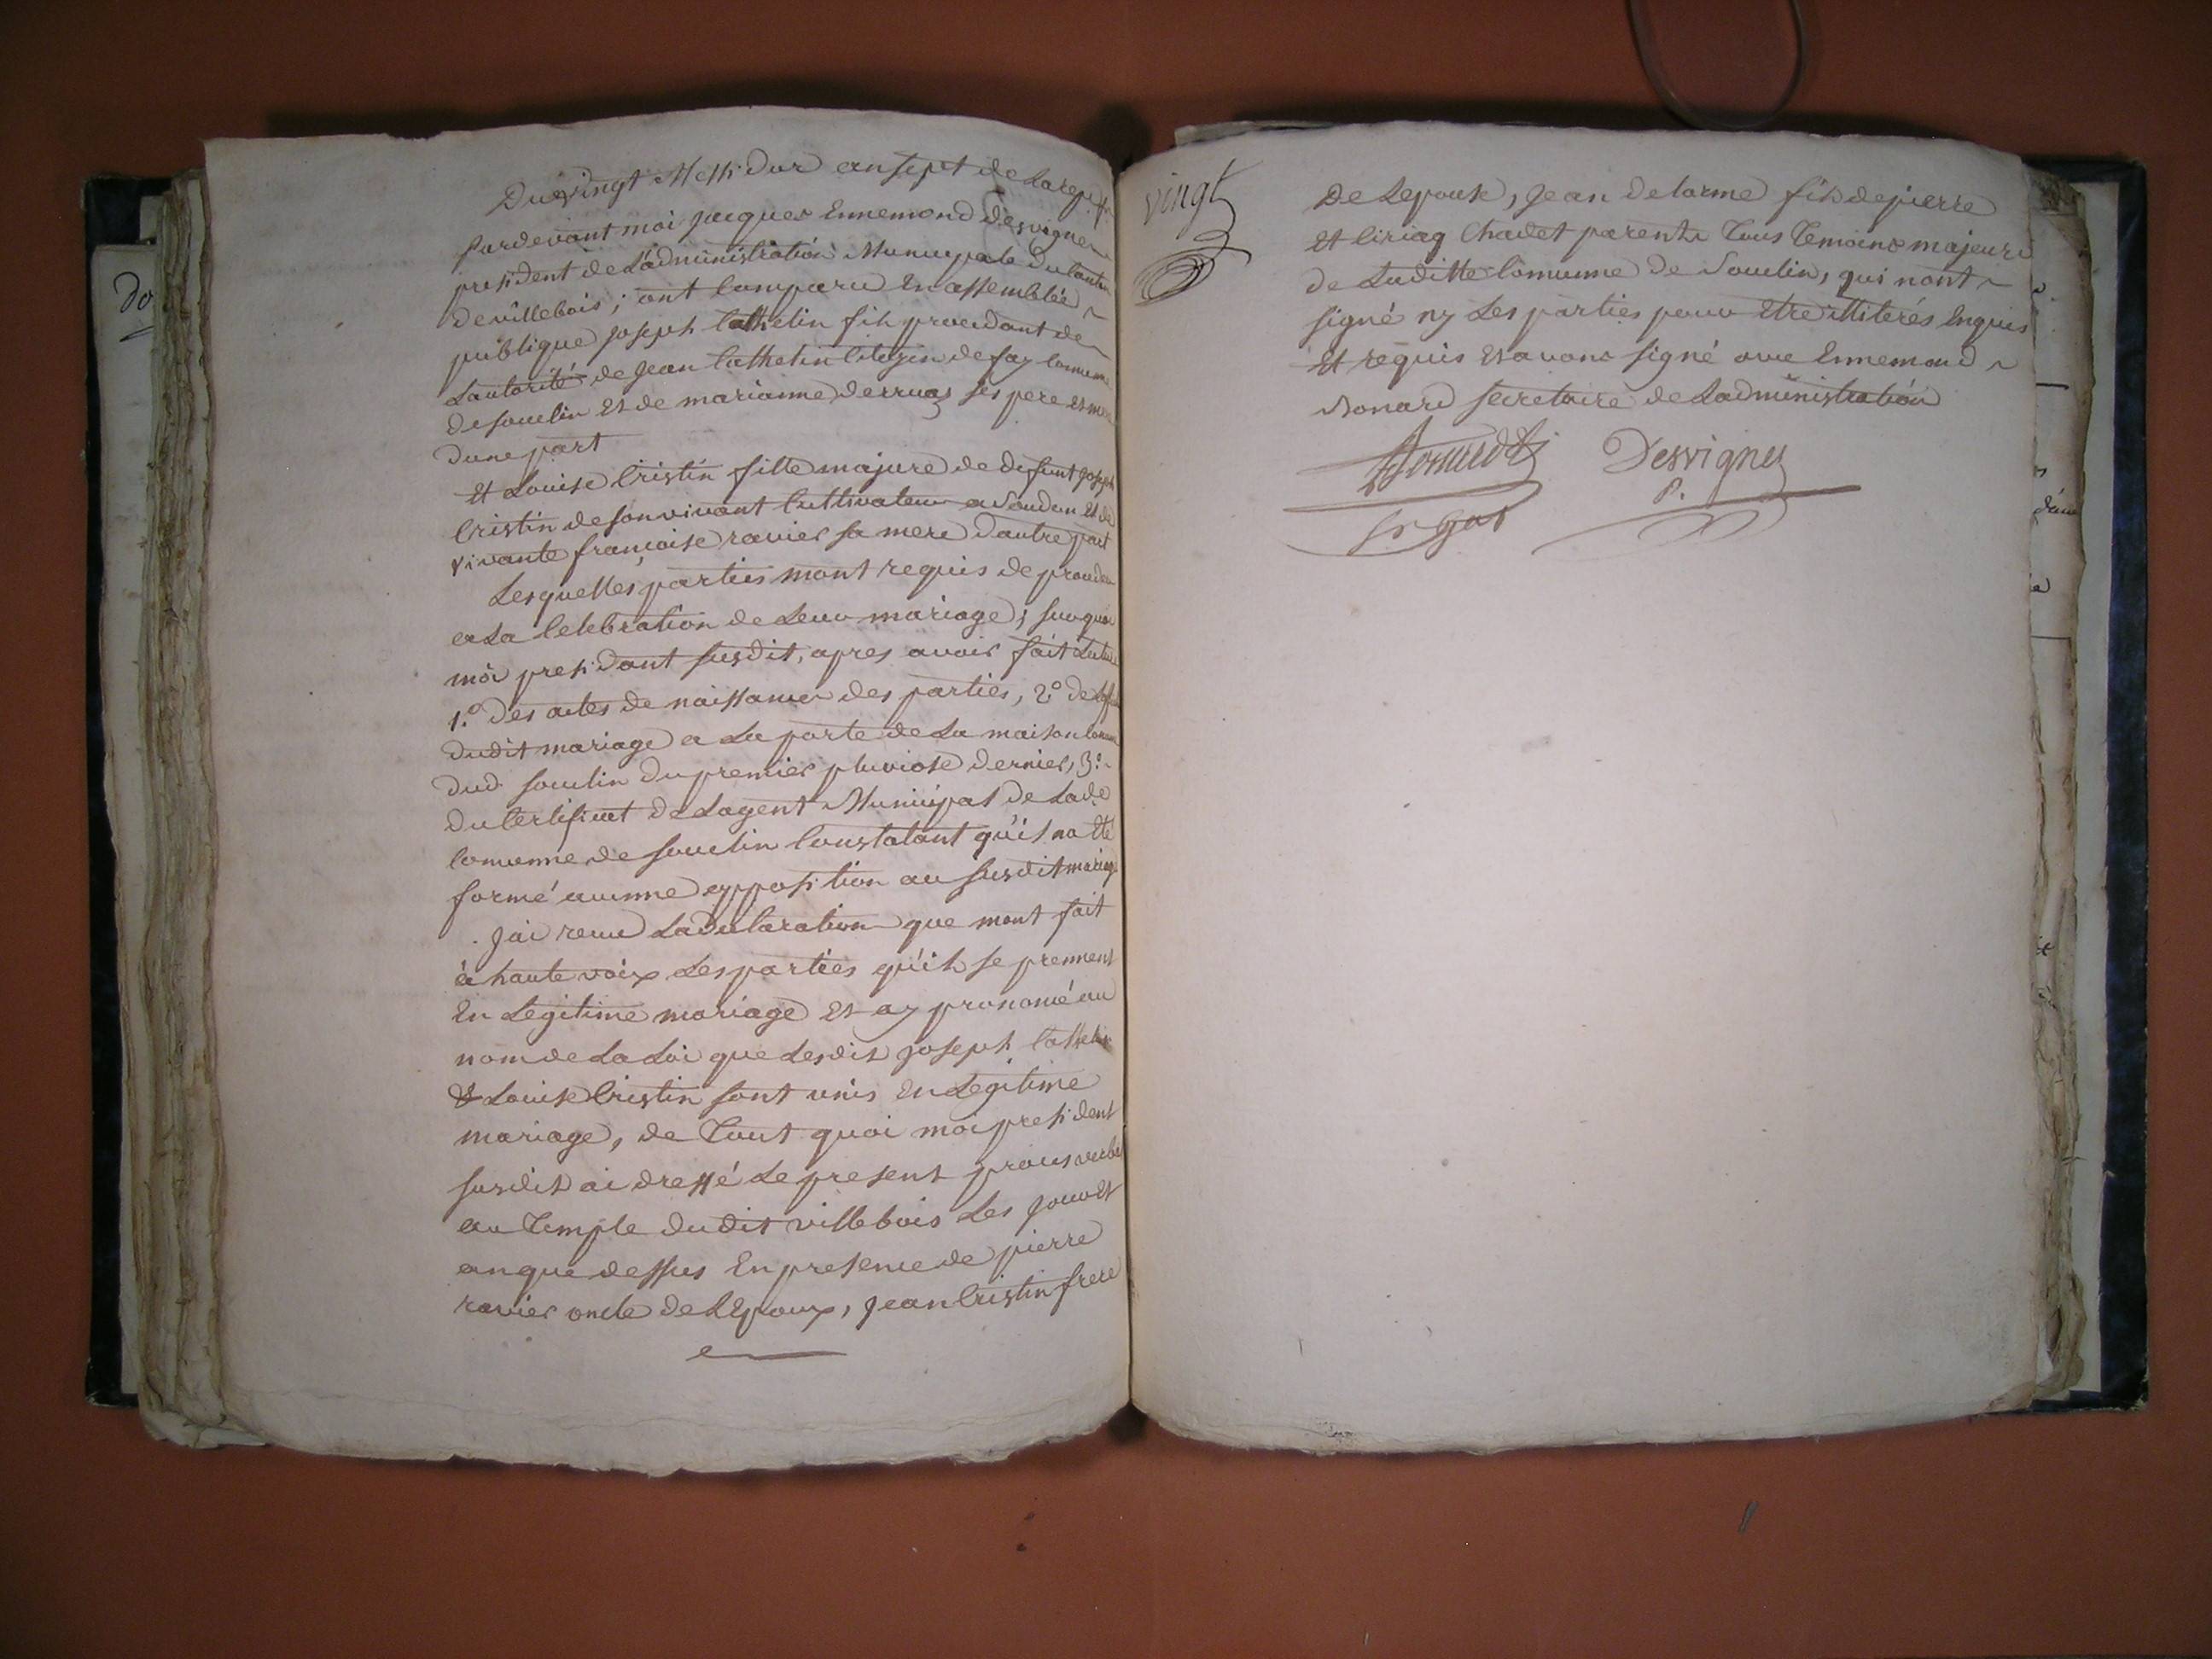 do
Du vingt Messidor an sept de la rep. f.
Pardevant moi jacques Ennemond desvignes
president de l'administration Municipale du canton
de villebois; ont comparu En assemblée ~
publique joseph Cathelin fils procedant de
Lautorité de jean Cathelin Citoyen de fay comune
de souclin Et de marianne derruaz ses pere et mere
d'une part
Et Louise Cristin fille majure de defunt joseph
Cristin de son vivant Cultivateur a Soudon Et de
vivante françoise ravier sa mere d'autre part
Lesquelles parties mont requis de proceder
a La Celebration de Leur mariage; sur quoi
moi presidant susdit, apres avoir fait Lecture
1.º des actes de naissance des parties, 2.º de
dudit mariage a La porte de La maison comune
dud. souclin du premier pluviose dernier, 3.º ~
du Certificat de Lagent Municipal de Lade
Comunne de souclin Constatant qu'il na Eté
formé aucunne opposition au susdit mariage
jai recu La declaration que mont fait
à haute voix Les parties qu'ils se prennent
En Legitime mariage Et ay prononcé au
nom de La Loi que Lesdits joseph Cathelin
& Louise Cristin sont unis En Legitime
mariage, de Tout quoi moi president
susdit ai dressé Le present proces verbal
au Temple dudit villebois Les jour et
an que dessus En presence de pierre
ravier oncle de LEpoux, jean Cristin frere
vingt
De Lepouse, Jean delorme fils de pierre
Et Ciriaq Chavet parents Tous Temoins majeurs
de Laditte Comunne de Souclin, qui nont ~
signé ny Les parties pour Etre illiterés Enquis
Et requis Et avons signé avec Ennemond ~
Bonard secretaire de Ladministration
Desvignes
P.